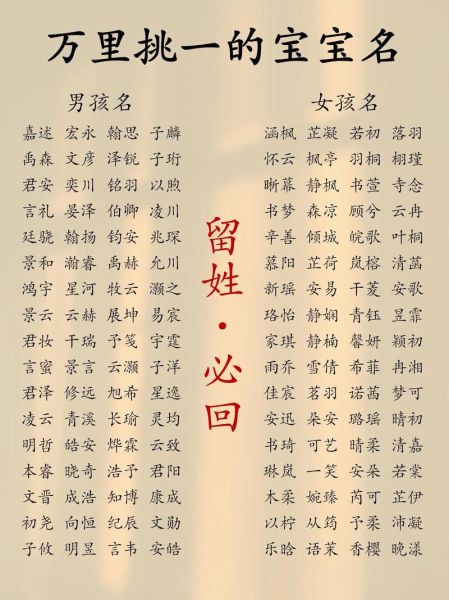 万里挑一的宝宝名
男孩名
嘉述 宏永 翰思 子麟
禹森 文彦 泽锐 子珩
君安 奕川 铭羽 以煦
言礼 晏泽 伯卿 凌川
廷骁 翰扬 钧安 兆琛
景和 瀚睿 禹赫 允川
鸿宇 星河 牧云 灏之
景云 云赫 展坤 易宸
君妆 干瑞 予笺 宇霆
言蜜 景言 云灏 子洋
君泽 修远 旭希 星逸
凌云 青溪 长瑜 灵均
明哲 皓安 烨霖 云致
本睿 晓奇 浩予 君阳
文晋 成浩 知博 康成
初尧 向恒 纪辰 文勋
子攸 明昱 言韦 安皓
留姓·必回
女孩名
涵枫 芷凝 若初 落羽
怀云 枫亭 羽桐 栩瑾
晰幕 静枫 书萱 寺念
书梦 森凉 顾兮 云冉
辛善 倾城 皖歌 叶桐
慕阳 芷荷 岚榕 清菡
新瑶 安易 干菱 安歌
珞怡 静娴 青钰 昱霏
家琪 静楠 馨妍 颖初
雨乔 雪倩 希菲 冉湘
佳宸 茗羽 诺茜 梦可
安迅 朵安 璐瑶 晴初
书琦 可艺 晴柔 清嘉
琳岚 一笑 安朵 若棠
木柔 婉臻 芮可 芷伊
以柠 从筠 予柔 沛凝
乐晗 语茉 香樱 晚漾